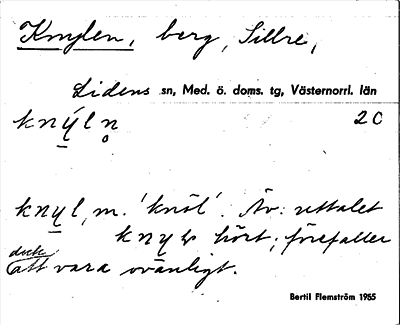 Knylen, berg, Sillre,
Lidens sn, Med. ö. doms. tg, Västernorrl. län
knýln̥ 20
knyl, m. 'knöl'. Äv. uttalet
kny hört; förefaller
dock
att vara ovanligt.
Bertil Flemström 1965